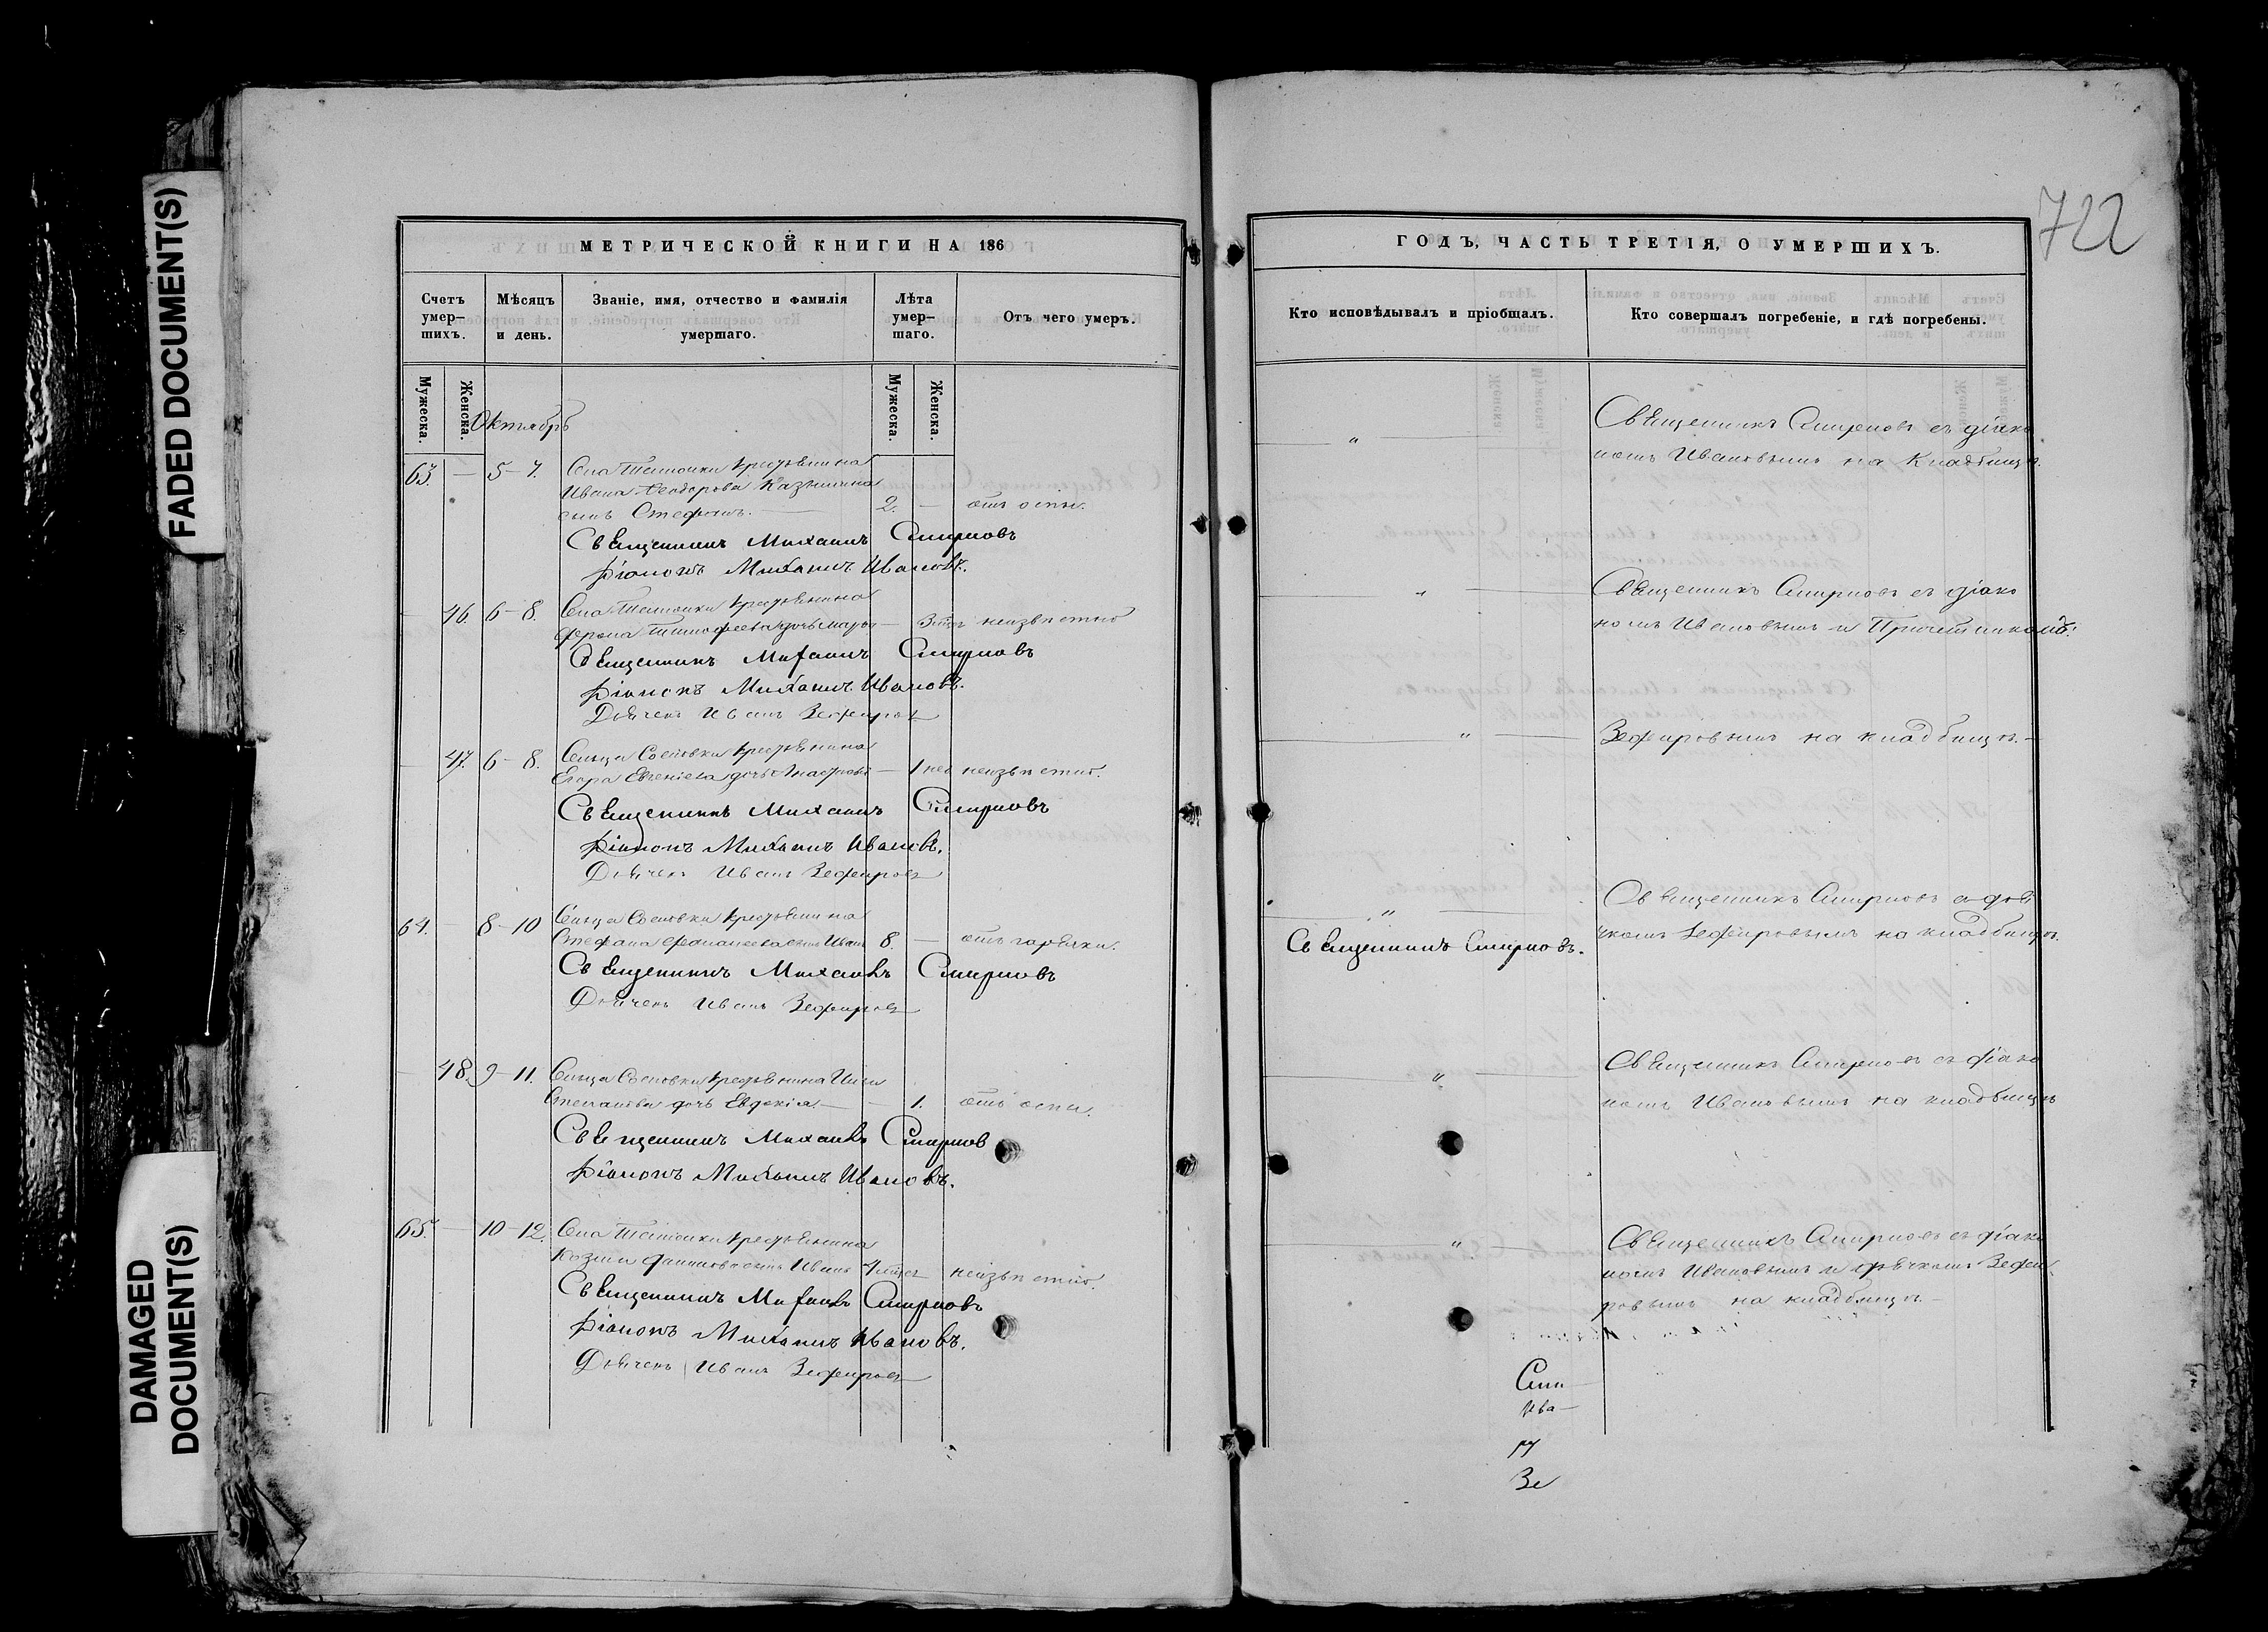 FADED DOCUMENT(S)
DAMAGED
DOCUMENT(S)
МЕТРИЧЕСКОЙ КНИГИ НА 186
Счетъ умер-шихъ.
Мѣсяцъ и день.
Званіе, имя, отчество и фамилія умершаго.
Лѣта умер-шаго.
Отъ чего умеръ.
Мужеска.
Женска.
Мужеска.
Женска.
Октябрь
63. — 5-7. Села крестьянина
Ивана Ѳеодорова
сынъ Стефанъ. — 2. — отъ оспы.
Священникъ Михаилъ Смирновъ
Діаконъ Михаилъ Ивановъ.
— 46. 6-8. Села крестьянина
дочь — неизвѣстно
Священникъ Михаилъ Смирновъ
Діаконъ Михаилъ Ивановъ.
Дьячекъ Иванъ Зефировъ
— 47. 6-8. Сельца Сосновки крестьянина
Егора дочь — 1 нед неизвѣстно.
Священникъ Михаилъ Смирновъ
Діаконъ Михаилъ Ивановъ.
Дьячекъ Иванъ Зефировъ
64. — 8-10 Сельца Сосновки крестьянина
Стефана сынъ Иванъ 8. — отъ горячки.
Священникъ Михаилъ Смирновъ
Дьячекъ Иванъ Зефировъ
— 48. 9-11. Сельца Сосновки крестьянина
Степанова дочь Евдокія. — — 1. отъ оспы.
Священникъ Михаилъ Смирнов
Діаконъ Михаилъ Ивановъ.
65. — 10-12. Села крестьянина
Козмы сынъ Иванъ неизвѣстно.
Священникъ Михаилъ Смирновъ
Діаконъ Михаилъ Ивановъ.
Дьячекъ Иванъ Зефировъ
722
ГОДЪ, ЧАСТЬ ТРЕТІЯ, О УМЕРШИХЪ.
Кто исповѣдывалъ и пріобщалъ.
Кто совершалъ погребеніе, и гдѣ погребены.
— „ — Священникъ Смирновъ съ діако
номъ Ивановымъ на кладбищѣ.
— „ — Священникъ Смирновъ съ діако
номъ Ивановымъ и
— „ — Зефировымъ на кладбищѣ. —
— „ — Священникъ Смирновъ съ дья
чкомъ Зефировымъ на кладбищѣ.
Священникъ Смирновъ.
— „ — Священникъ Смирновъ съ діако
номъ Ивановымъ на кладбищѣ
— „ — Священникъ Смирновъ съ діако
номъ Ивановымъ и дьячкомъ Зефи
ровымъ на кладбищѣ. —
Сми
Ива —
Зе